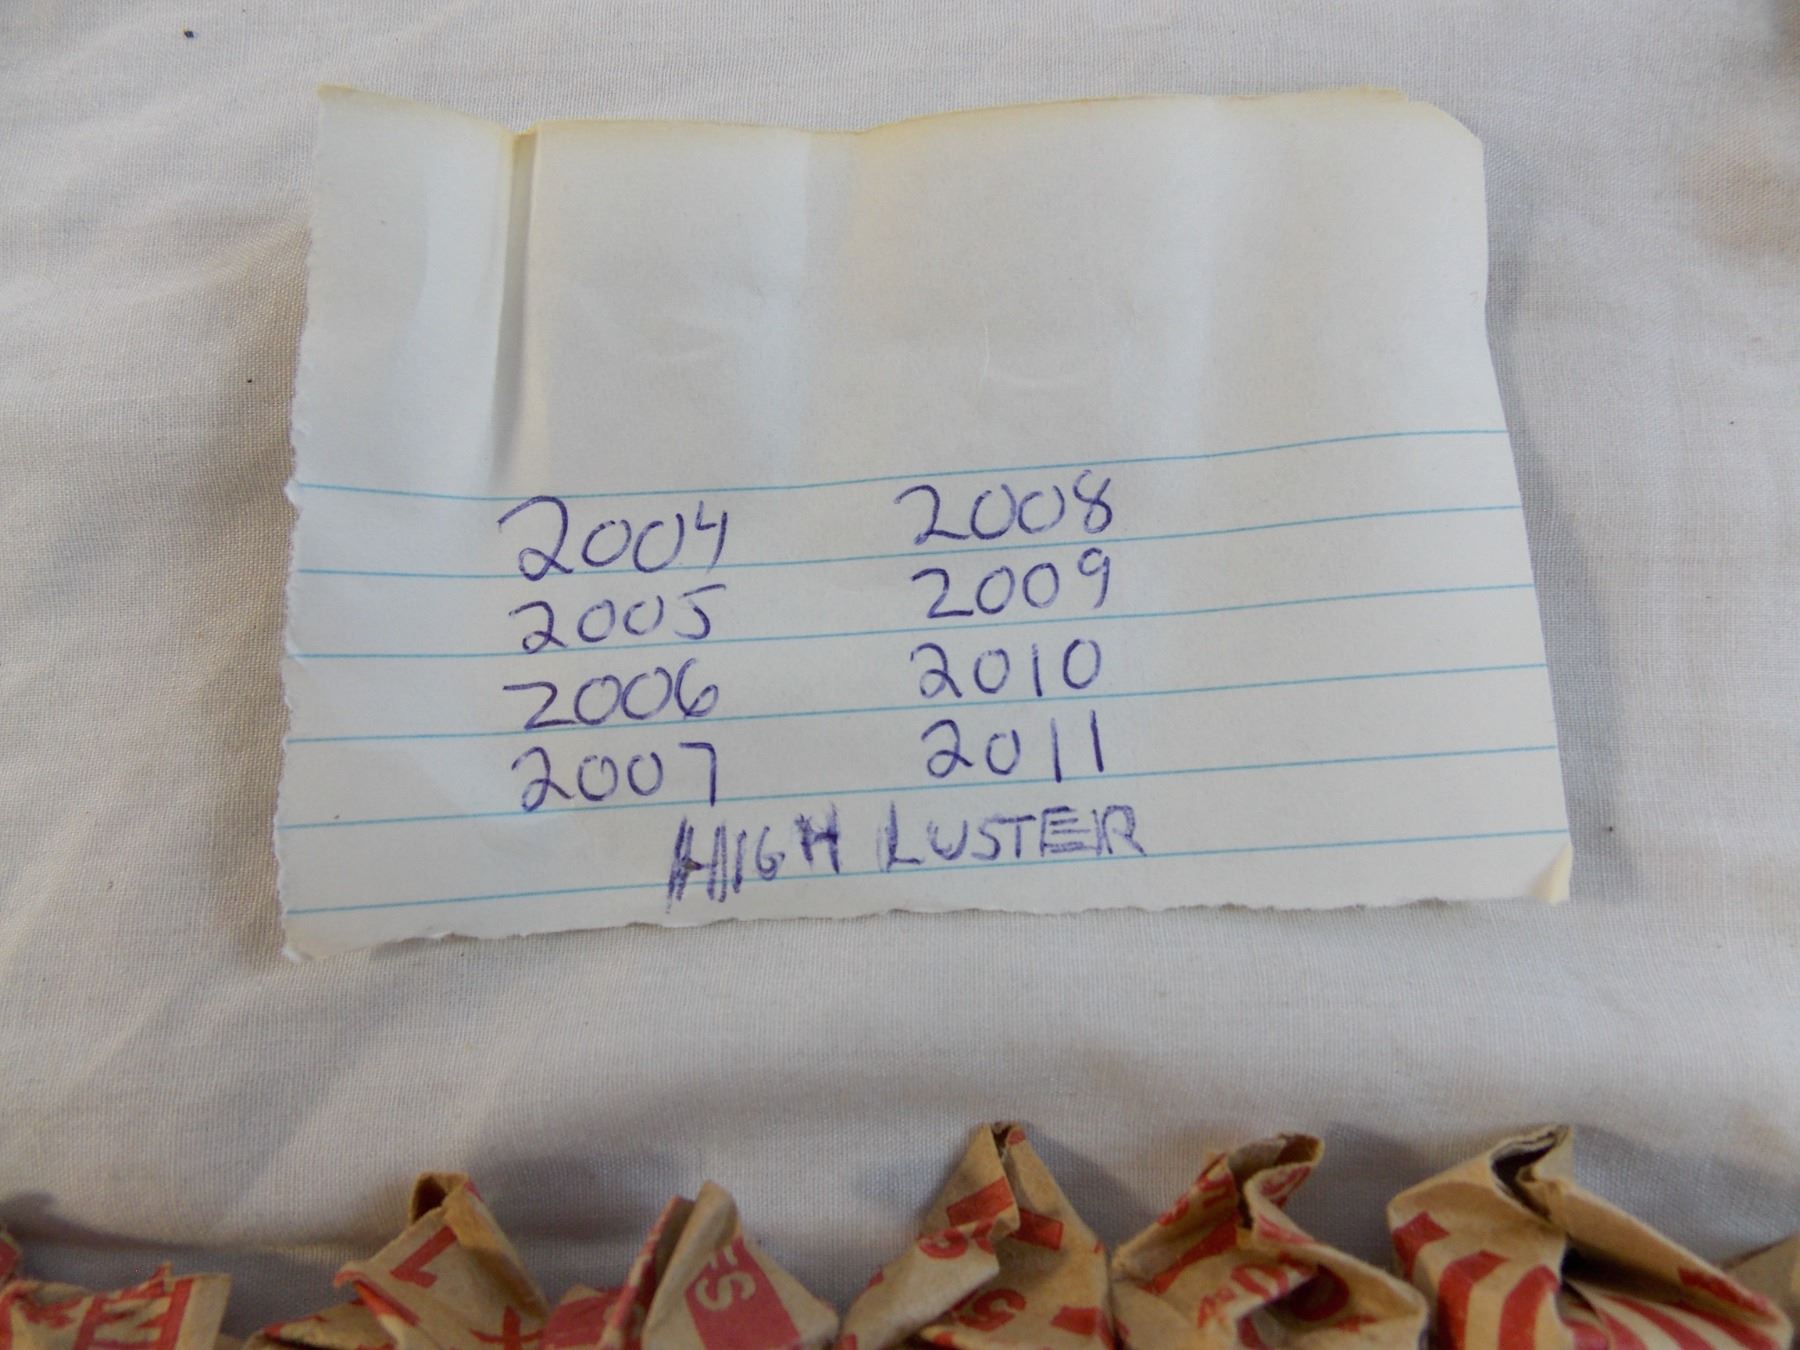 2004 2008
2005 2009
2006 2010
2007 2011
HIGH LUSTER